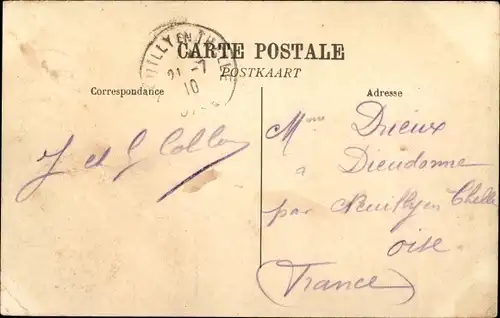 CARTE POSTALE
POSTKAART
Correspondance
Adresse
NEUILLY EN THELLE
21 -7
10
J et G
Mme Drieux
à Dieudonne
par Neuilly en Thelle
Oise
(France)